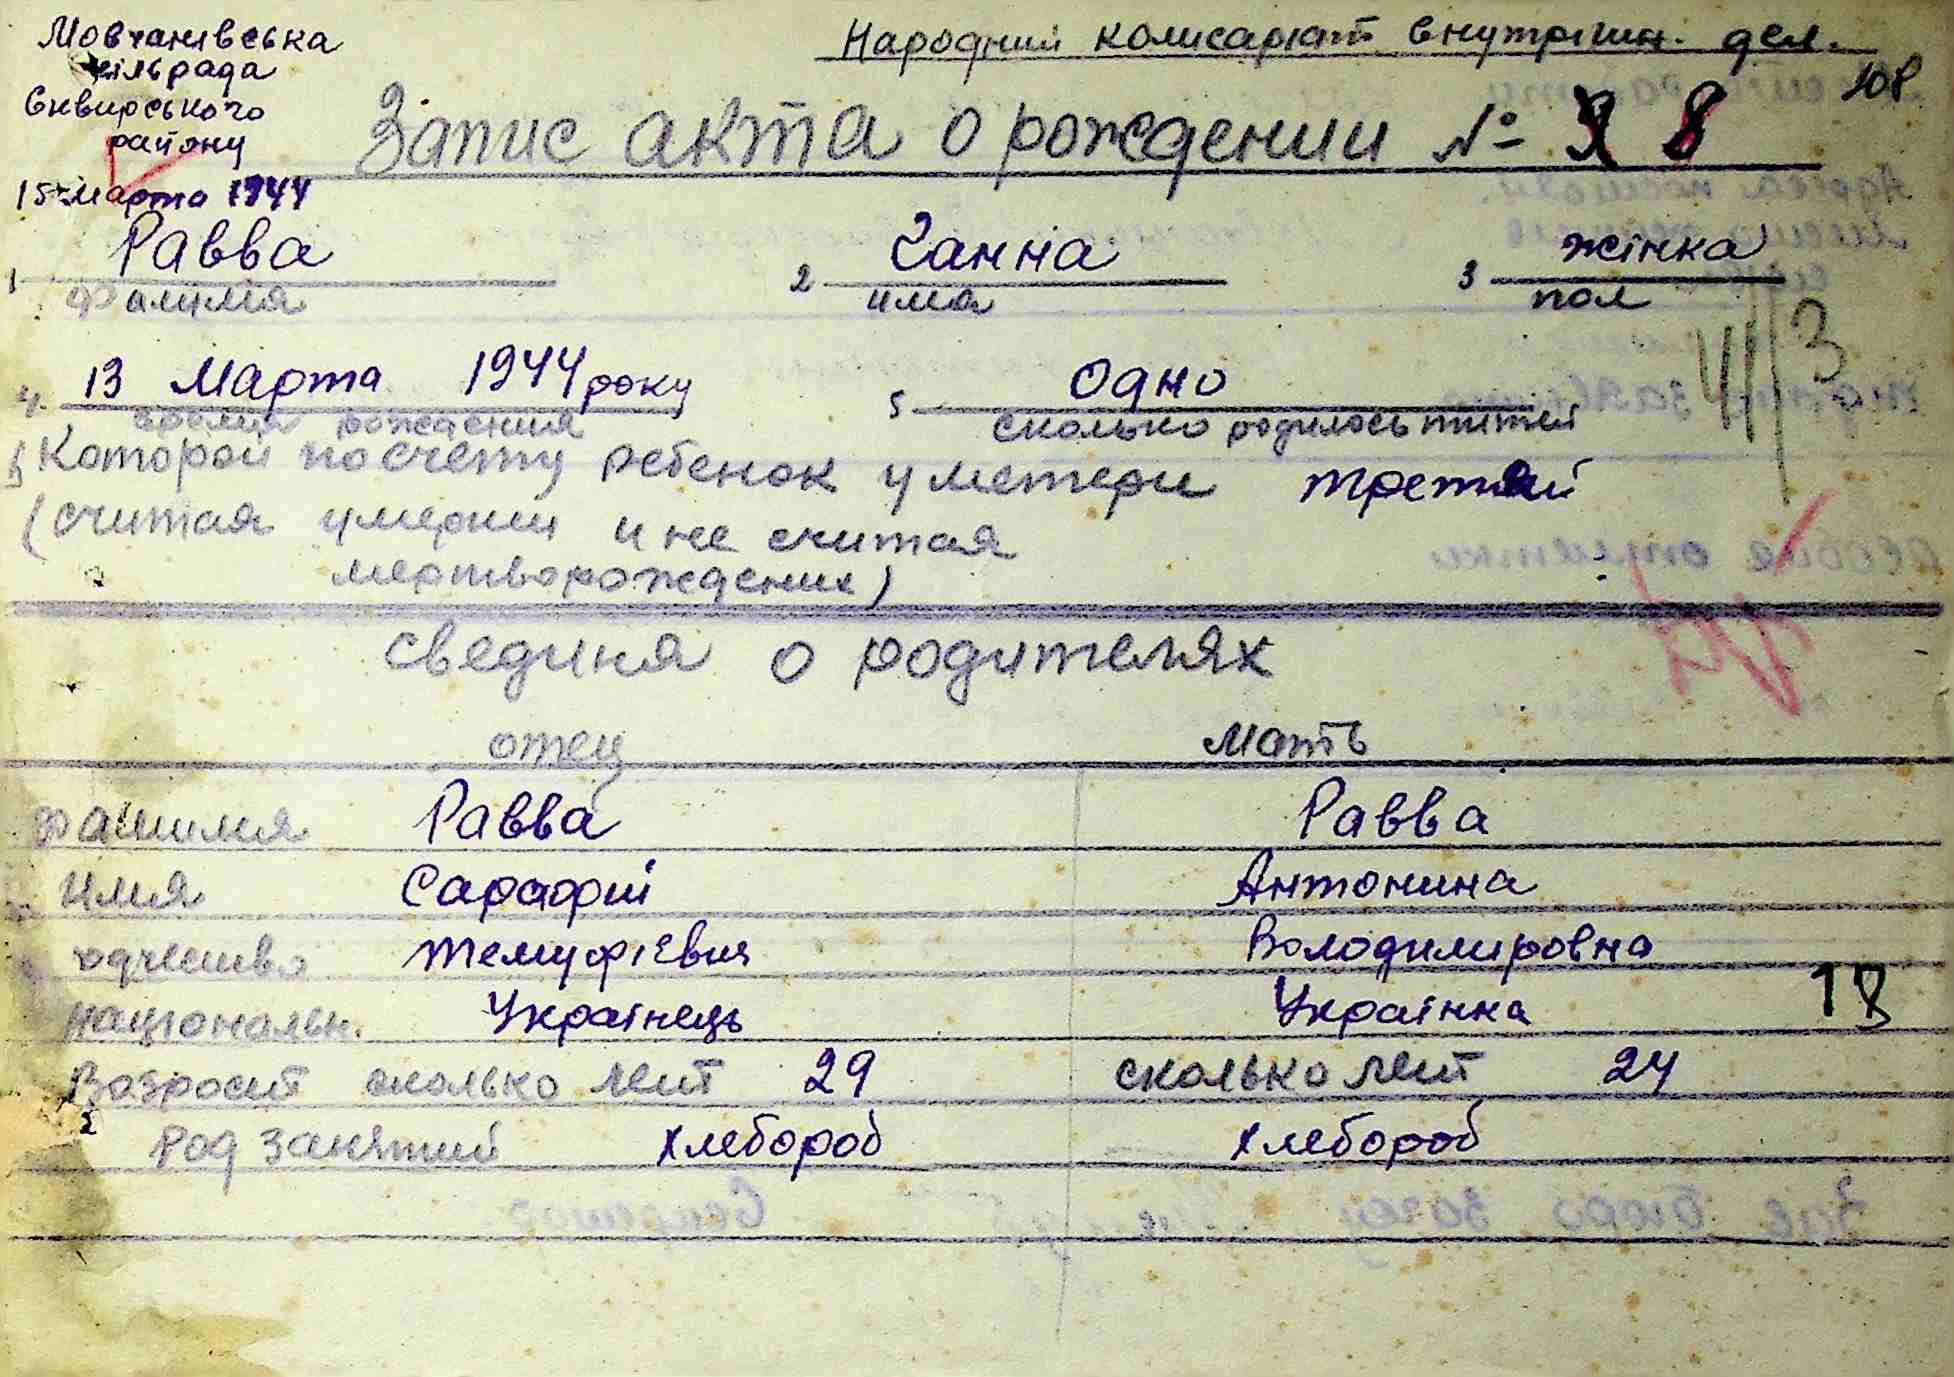 Мовчанівська
сільрада
Сквирського
району
15 Марта 1944
Народний комисариат внутриин. дел.
108
Запис акта о рождении № 8
1 Равва
фамилия
2 Ганна
има
3 жінка
пол
4. 13 Марта 1944 року
время рождения
5 Одно
сколько родилось титей
Которой по счету ребенок у метери третий
(считая умерших и не считая
мертворождених)
свединя о родителях
отец мать
фамилия Равва Равва
имя Сарафий Антонина
отчество Володимировна
національн. Українець Українка
18
Возрост сколько лет 29 сколько лет 24
Род занятий хлебороб хлебороб